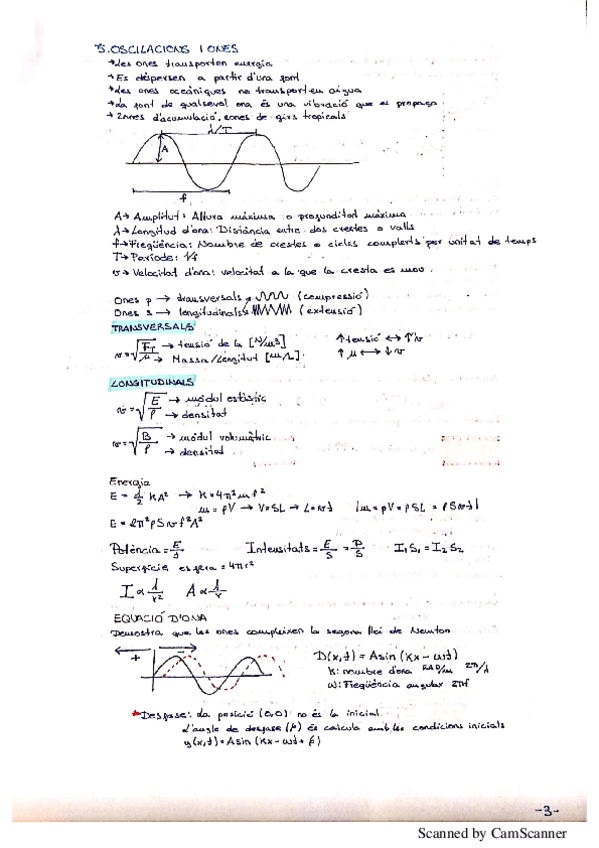 5. OSCILACIONS I ONES
→ Les ones transporten energia
→ Es dispersen a partir d'una font
→ Les ones oceàniques no transporten aigua
→ La font de qualsevol ona és una vibració que es propaga
→ Zones d'acumulació, zones de girs tropicals
λ/T
A
f
A → Amplitut: Altura màxima o profunditat màxima
λ → Longitud d'ona: Distància entre dos crestes o valls
f → Freqüència: Nombre de crestes o cicles complerts per unitat de temps
T → Període: 1/f
v → Velocitat d'ona: velocitat a la que la cresta es mou.
Ones p → transversals (compressió)
Ones s → longitudinals (extensió)
TRANSVERSALS
v = √(F_T/μ) → tensió de la [N/m3] ↑ tensió ↔ ↑ v
→ Massa/Longitut [m/L] ↑ μ ↔ ↓ v
LONGITUDINALS
v = √(E/ρ) → mòdul elàstic
→ densitat
v = √(B/ρ) → mòdul volumètric
→ densitat
Energia
E = 1/2 KA² → K = 4π²m f²
m = ρV → V = SL → L = vt (m = ρV = ρSL = ρSvt)
E = 2π²ρSvf²A²
Potència = E/t Intensitats = E/S = P/S I₁S₁ = I₂S₂
Superfície esfera = 4πr²
I ∝ 1/r² A ∝ 1/r
EQUACIÓ D'ONA
Demostra que les ones compleixen la segona llei de Newton
+ −
D(x,t) = A sin (Kx − ωt)
K: nombre d'ona RAD/m 2π/λ
ω: Freqüència angular 2πf
* Desfase: La posició (0,0) no és la inicial.
L'angle de desfase (β) és calcula amb les condicions inicials
y(x,t) = A sin (Kx − ωt + β)
-3-
Scanned by CamScanner